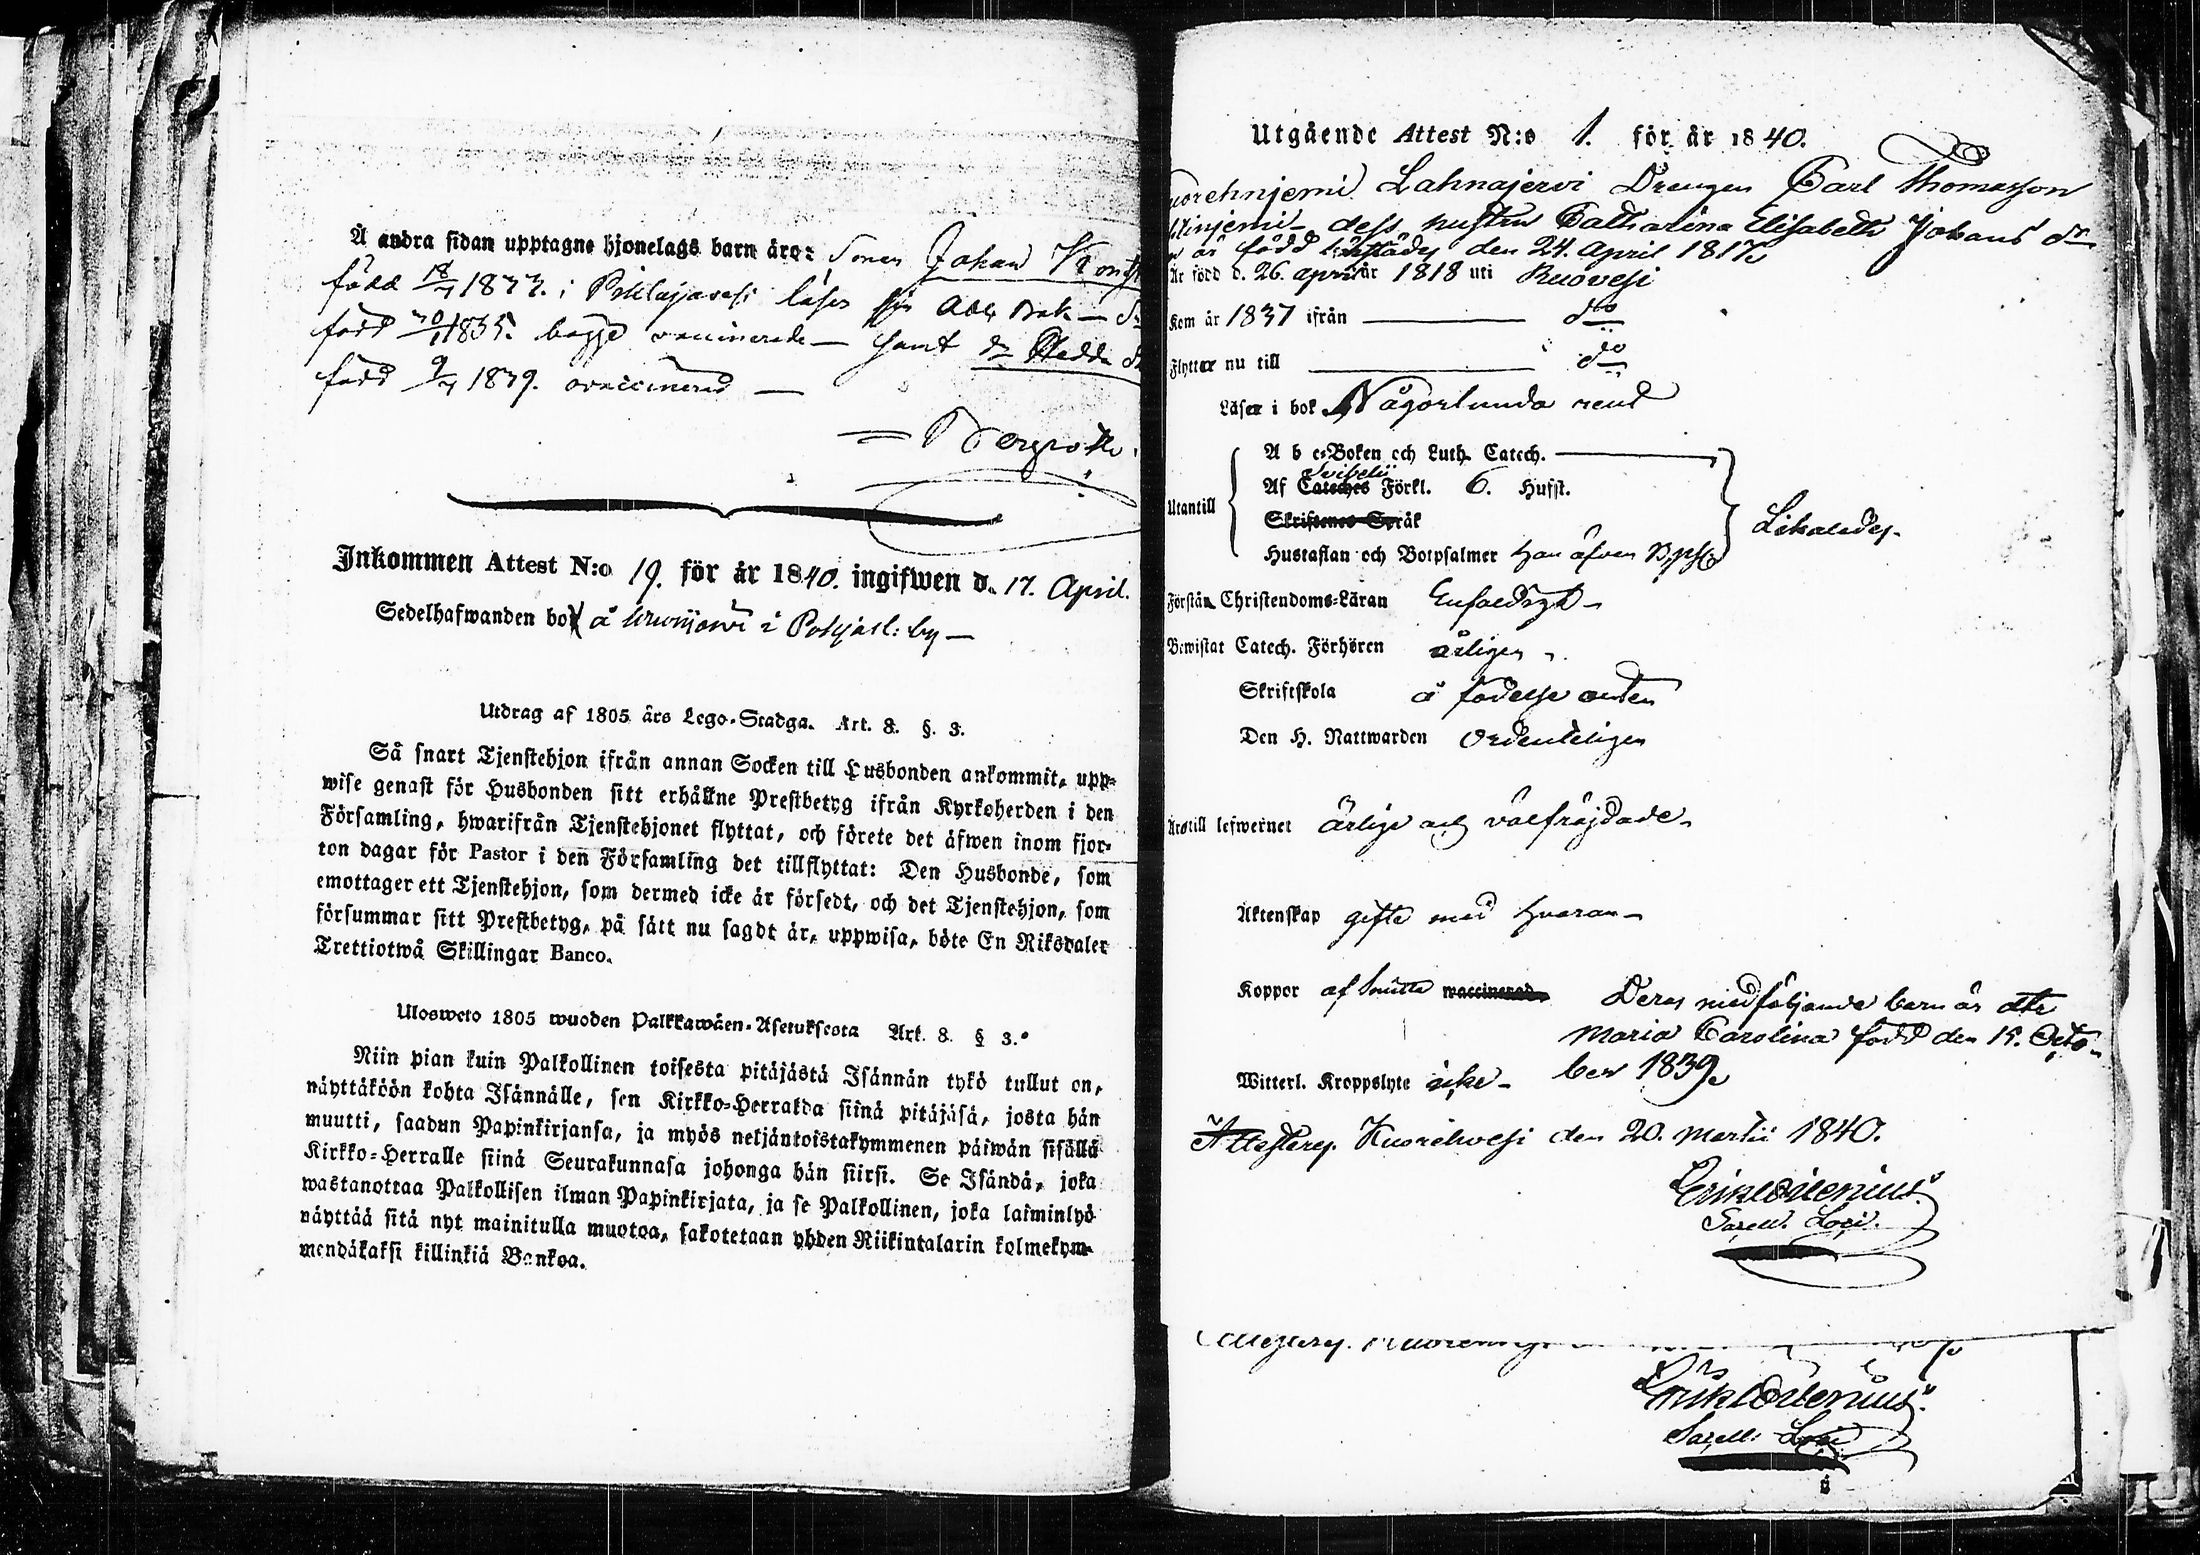 Å andra sidan upptagne hjonelags barn äro: Sonen Johan
född 18/7 1833. i läser Abc Bok —
född 1835. begge vaccinerade — samt Hedda
född 9/7 1839. ovaccinerad —
Bergroth.
Inkommen Attest N:o 19. för år 1840. ingifwen d. 17. April.
Sedelhafwanden bor å i Pohjasl: by —
Utdrag af 1805 års Lego-Stadga. Art. 8. §. 3.
Så snart Tjenstehjon ifrån annan Socken till Husbonden ankommit, upp-
wise genast för Husbonden sitt erhållne Prestbetyg ifrån Kyrkoherden i den
Församling, hwarifrån Tjenstehjonet flyttat, och förete det äfwen inom fjor-
ton dagar för Pastor i den Församling det tillflyttat: Den Husbonde, som
emottager ett Tjenstehjon, som dermed icke är försedt, och det Tjenstehjon, som
försummar sitt Prestbetyg, på sätt nu sagdt är, uppwisa, böte En Riksdaler
Trettiotwå Skillingar Banco.
Ulosweto 1805 wuoden Palkkawäen-Asetuksesta Art. 8. § 3.
Niin pian kuin Palkollinen toisesta pitäjästä Isännän tykö tullut on,
näyttäköön kohta Isännälle, sen Kirkko-Herralda siinä pitäjäsä, josta hän
muutti, saadun Papinkirjansa, ja myös neljäntoistakymmenen päiwän sisällä
Kirkko-Herralle siinä Seurakunnasa johonga hän siirsi. Se Isändä, joka
wastanottaa Palkollisen ilman Papinkirjata, ja se Palkollinen, joka laiminlyö
näyttää sitä nyt mainitulla muotoa, sakotetaan yhden Riikintalarin kolmekym-
mendäkaksi killinkiä Bankoa.
Utgående Attest N:o 1. för år 1840.
Lahnajervi Drengen Carl Thomasson
dess hustru Catharina Elisabeth Johans dr
är född den 24. April 1817.
Är född d. 26. april år 1818 uti Ruovesi
Kom år 1837 ifrån — do
Flyttar nu till — do
Läser i bok Någorlunda rent
A b c-Boken och Luth. Catech. —
Svibelii
Af Cateches Förkl. 6. Hufst.
Utantill
Skriftenes Språk
Likaledes
Hustaflan och Botpsalmer han äfven B.ps.
Förstår Christendoms-Läran Enfaldigt —
Bewistat Catech. Förhören årligen
Skriftskola å födelse orten
Den H. Nattwarden Ordenteligen
Är till lefwernet ärlige och välfrejdade
Äktenskap gifte med hvaran —
Koppor af Smitta waccinerad Deras medföljande barn är dtr
Maria Carolina född den 15. Octo-
Witterl. Kroppslyte icke — ber 1839.
Attesterej. Kuorehvesi den 20. Martii 1840.
Erik Idenius
Sacell. Loci.
Erik Idenius
Sacell. Loci